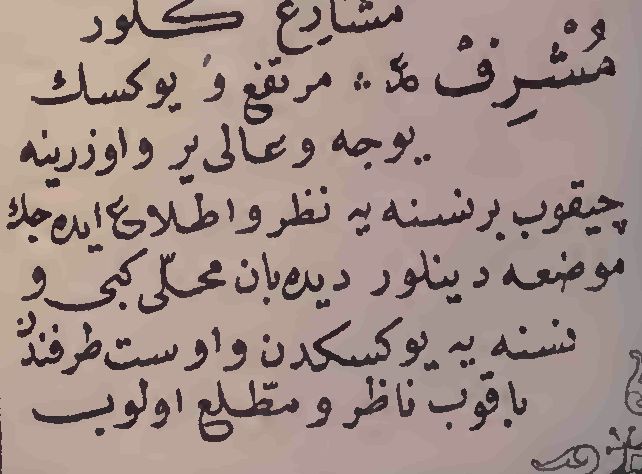 مشارع كلور
مُشْرِفْ مرتفع و يوكسك
يوجه و عالى ير و اوزرينه
چيقوب بر نسنه يه نظر و اطلاع ايده جك
موضعه دينلور ديده بان محلّى كبى و
نسنه يه يوكسكدن و اوست طرفندن
باقوب ناظر و مطّلع اولوب